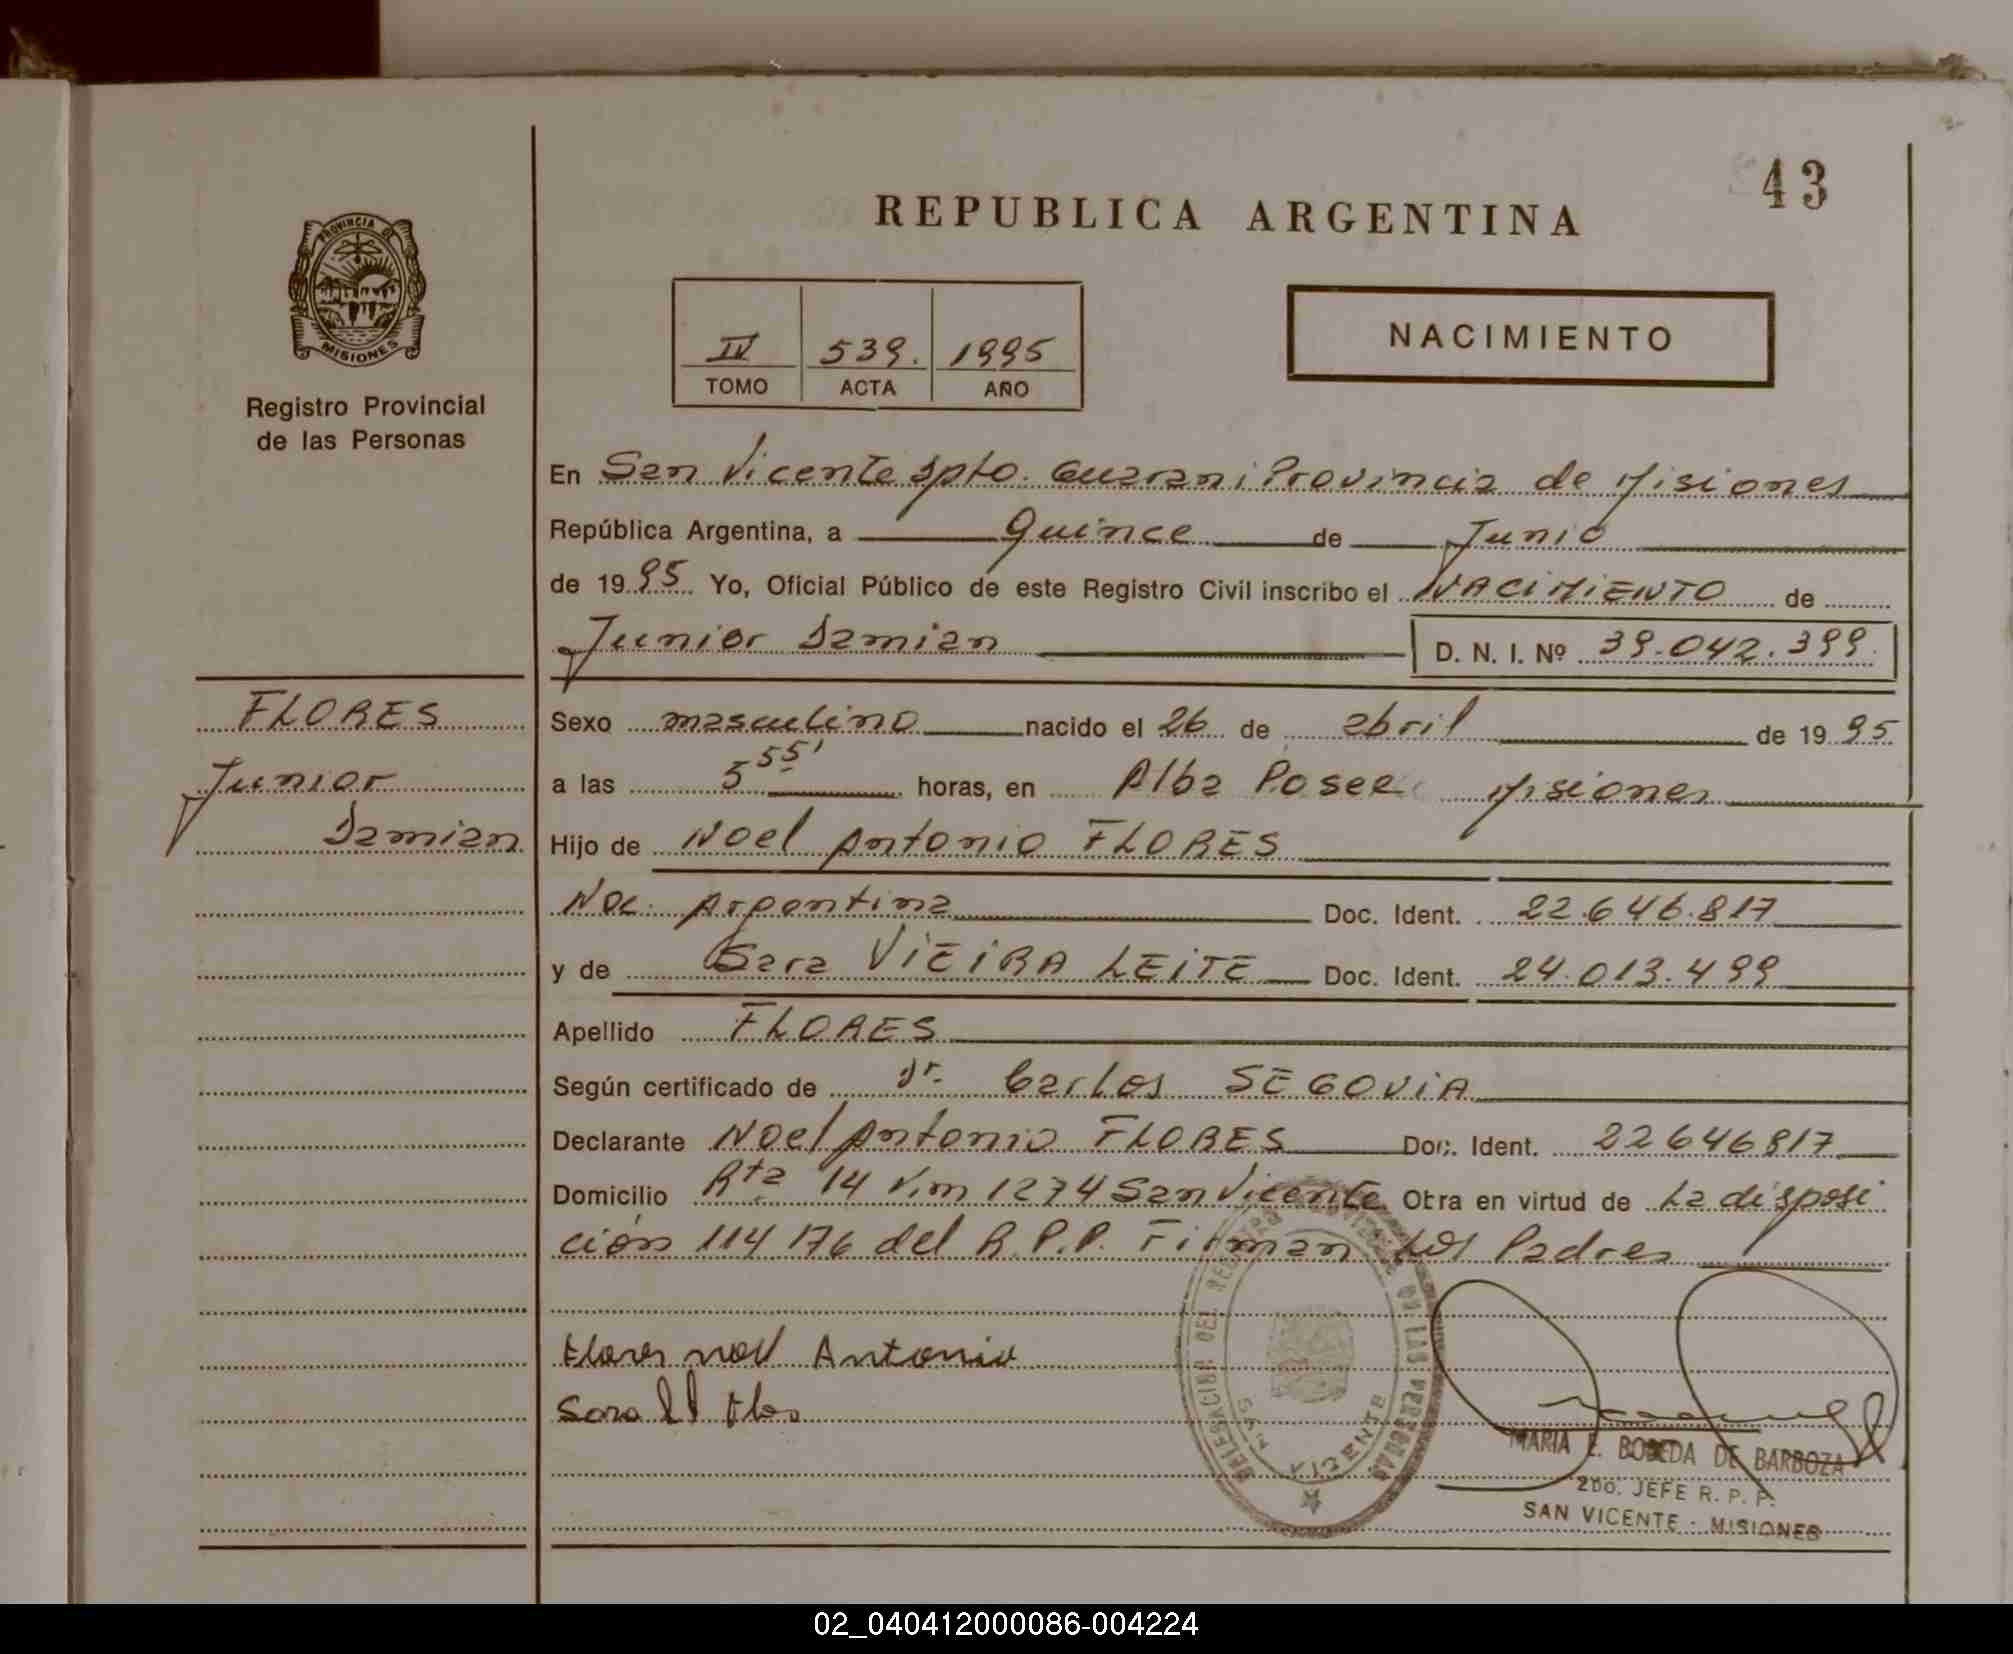 43
REPUBLICA ARGENTINA
PROVINCIA DE
MISIONES
Registro Provincial
de las Personas
IV 539. 1995
TOMO ACTA AÑO
NACIMIENTO
En San Vicente Dpto. Guarani Provincia de Misiones
República Argentina, a Quince de Junio
de 1995 Yo, Oficial Público de este Registro Civil inscribo el NACIMIENTO de
Junior Damian D. N. I. Nº 39.042.399
FLORES
Junior
Damian
Sexo masculino nacido el 26 de abril de 1995
a las 5 55' horas, en Alba Posee Misiones
Hijo de Noel Antonio FLORES
Nac. Argentina Doc. Ident. 22.646.817
y de Sara VIEIRA LEITE Doc. Ident. 24.013.499
Apellido FLORES
Según certificado de Dr. Carlos SEGOVIA
Declarante Noel Antonio FLORES Doc. Ident. 22646817
Domicilio Rta 14 Km 1274 San Vicente Obra en virtud de La disposi
ción 114/76 del R.P.P. Firman Los Padres
Flores noel Antonio
Sara
DELEGACION DEL REGISTRO PROVINCIAL DE LAS PERSONAS
SAN VICENTE
MARIA E. BOBEDA DE BARBOZA
2DO. JEFE R. P. P.
SAN VICENTE - MISIONES
02_040412000086-004224